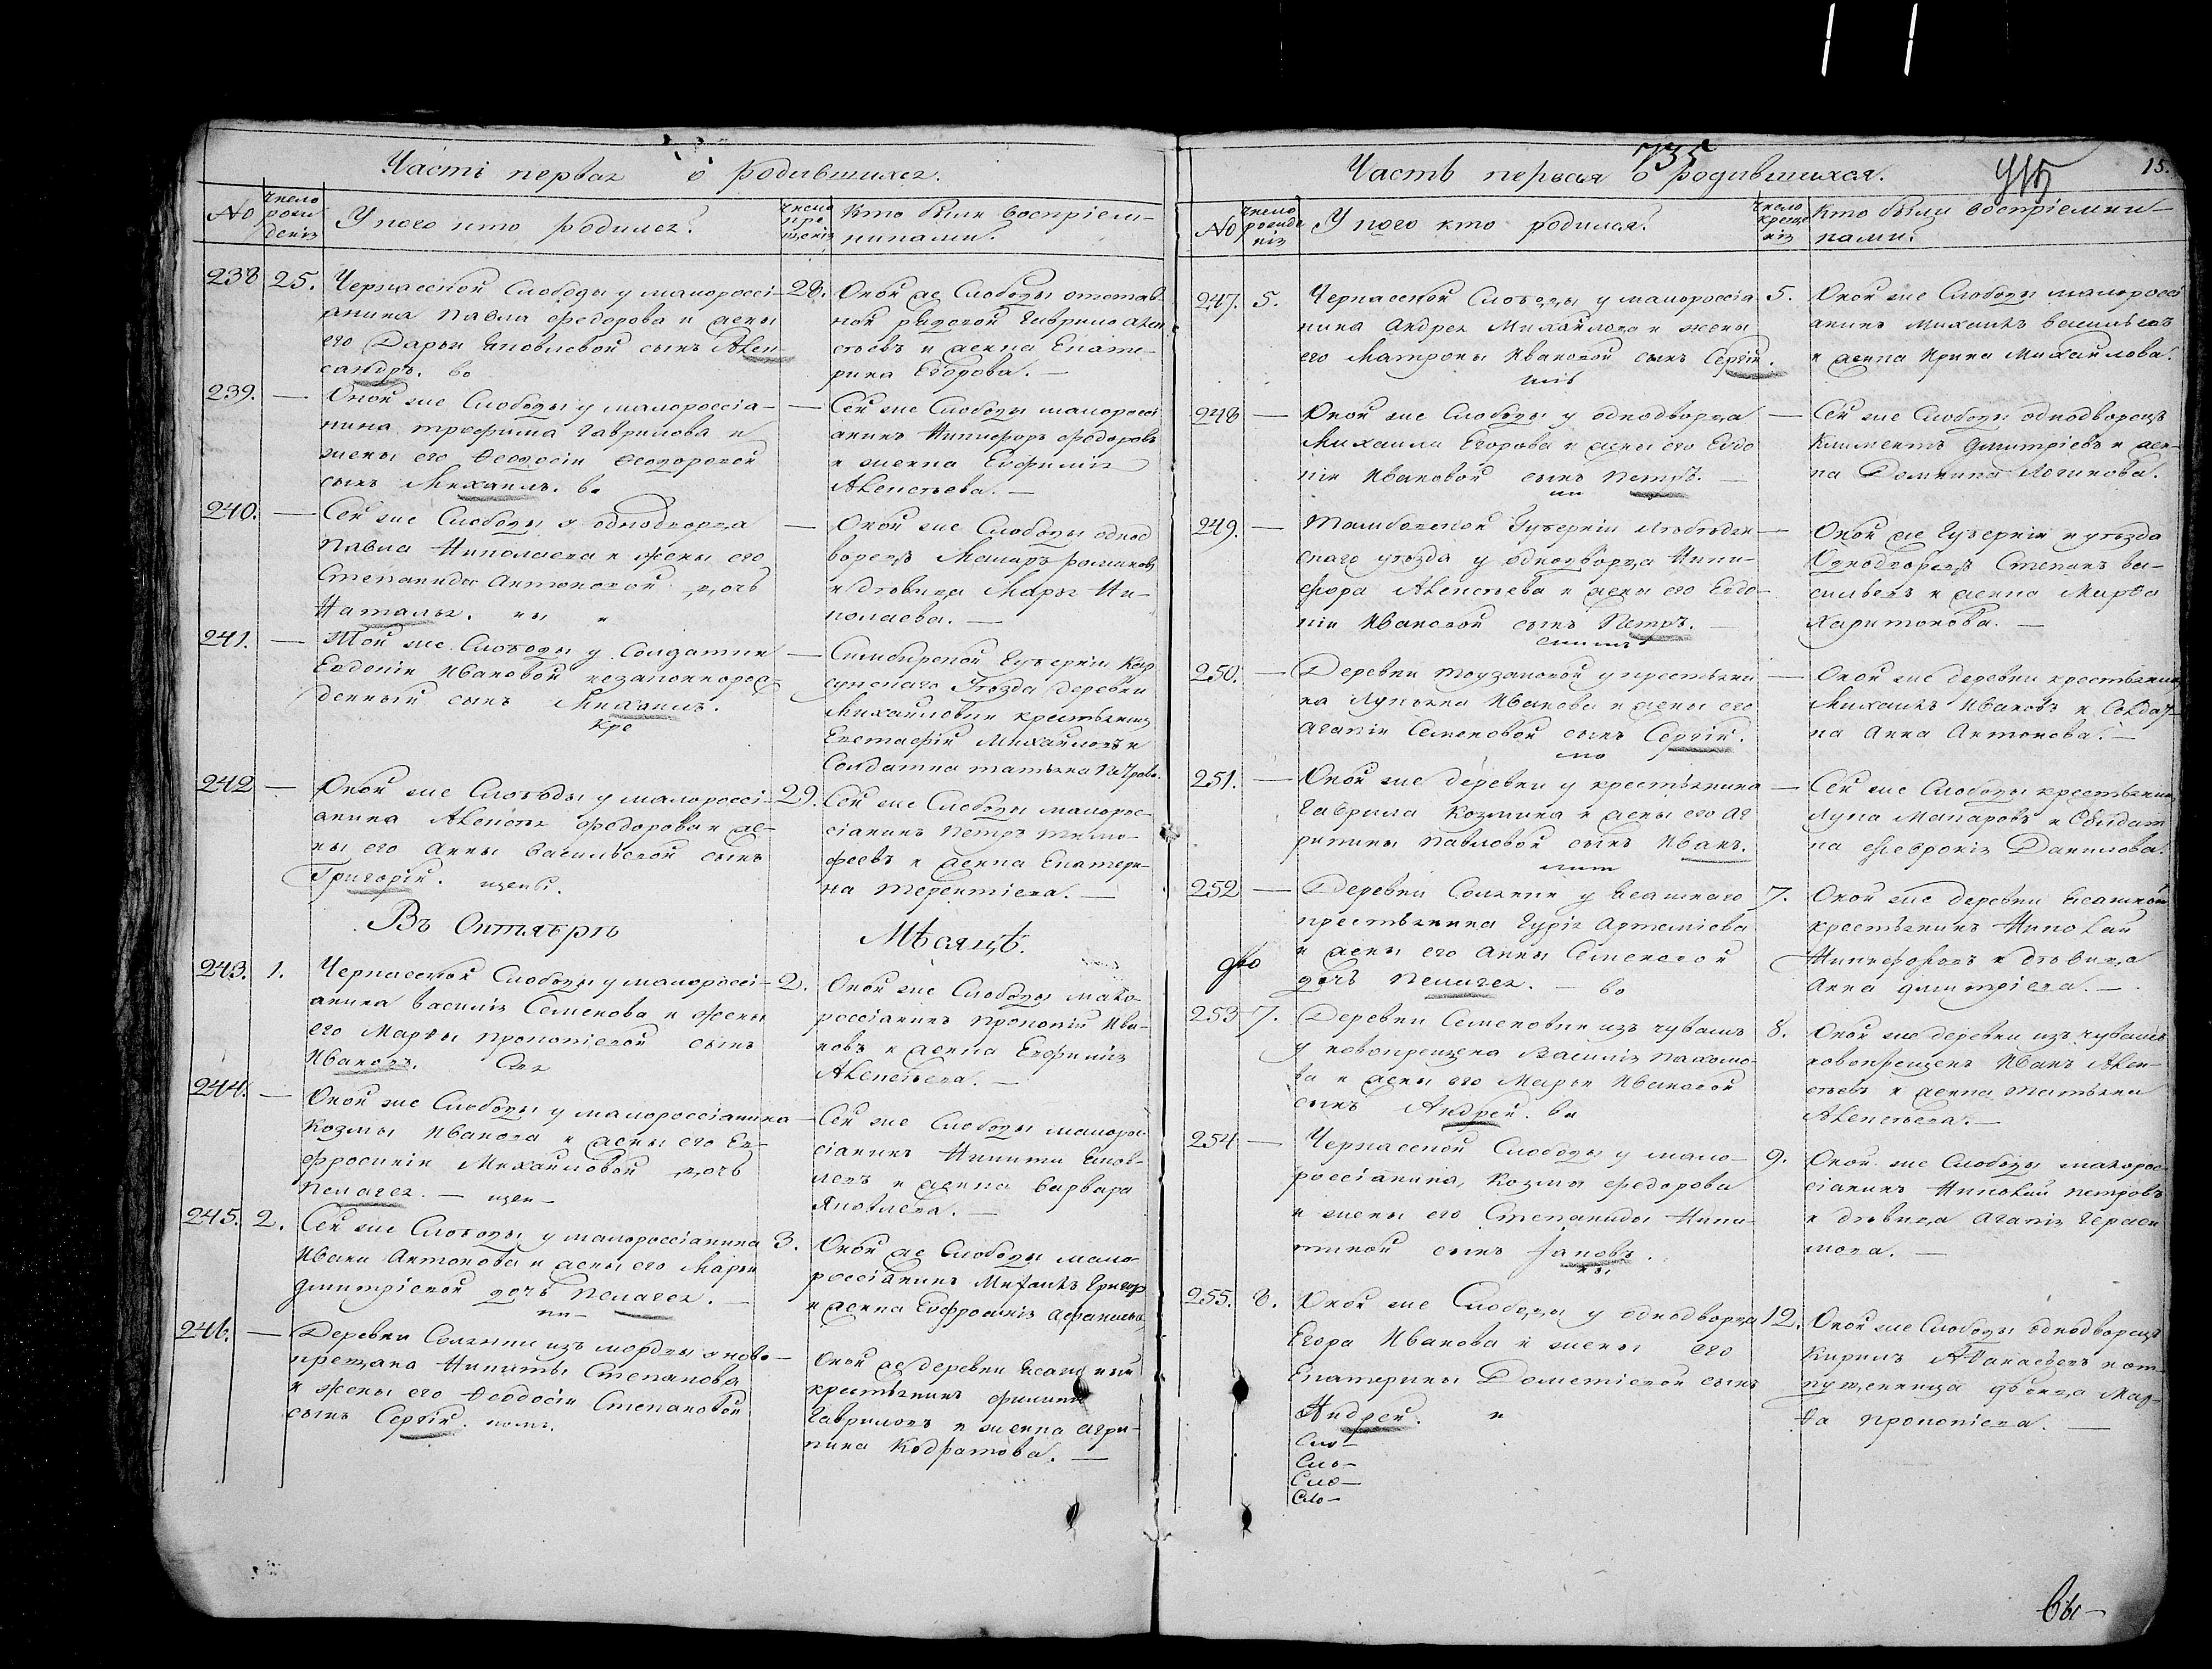 Часть первая о родившихся.
No
число рожденія
У кого кто родился?
число крещенія
Кто были воспріем-
никами.
238
25.
Черкасской Слободы у малороссі-
янина Павла Федорова и жены
его Дарьи Яковлевой сынъ Алек-
сандръ. во
28.
Оной же Слободы отстав-
ной рядовой Гаврило Алек
сѣевъ и женка Екате-
рина Егорова. —
239. —
Оной же Слободы у малороссія-
нина Трофима Гаврилова и
жены его Ѳеодосіи Ѳеодоровой
сынъ Михаилъ. во
—
Сей же Слободы малоросс
анинъ Никифоръ Федоровъ
и женка Евфимія
Алексѣева. —
240. —
Сей же Слободы у однодворца
Павла Николаева и жены его
Степаниды Антоновой дочь
Наталья.
—
Оной же Слободы однод
ворецъ Макаръ Романовъ
и дѣвица Марья Ни-
колаева. —
241. —
Той же Слободы у Солдатки
Евдокіи Ивановой незаконнорож-
денный сынъ Михаилъ.
кре
—
Симбирской Губерніи Кар
сунскаго Уѣзда Деревни
Михайловки крестьянинъ
Евстафій Михайловъ и
Солдатка Татьяна Петрова.
242 —
Оной же Слободы у малороссі-
анина Алексѣя Федорова и же-
ны его Анны Васильевой сынъ
Григорій. щены.
29.
Сей же Слободы малорос-
сіанинъ Петръ Тимо-
феевъ и женка Екатери-
на Терентіева. —
Въ Октябрѣ
Мѣсяцѣ.
243. 1.
Черкасской Слободы у малороссі-
анина Василія Семенова и жены
его Марѳы Прокопіевой сынъ
Иванъ.
2.
Оной же Слободы мало-
россіанинъ Прокопій Ива-
новъ и женка Евфимія
Алексѣева. —
244. —
Оной же Слободы у малороссіанина
Козмы Иванова и жены его Ев-
фросиніи Михайловой дочь
Пелагея. — щен —
—
Сей же Слободы малорос
сіанинъ Никита Яков-
левъ и женка Варвара
Яковлева. —
245. 2.
Сей же Слободы у малороссіанина
Ивана Антонова и жены его Марьи
Дмитріевой дочь Пелагея. —
3.
Оной же Слободы мало-
россіанинъ Михаилъ Григор
и женка Евфросинія Афанасьева,
246. —
Деревни Солянки изъ мордвы у ново-
крещена Никиты Степанова
и жены его Ѳеодосіи Степановой
сынъ Сергій.
—
Оной же деревни Ясашный
крестьянинъ Филипп
Гавриловъ и женка Агри-
пина Кодратова. —
735
15.
Часть первая о родившихся.
No
число рожденія
У кого кто родился?
число крещенія
Кто были воспріемни-
ками.
247. 5.
Черкасской Слободы у малороссія
нина Андрея Михайлова и жены
его Матроны Ивановой сынъ Сергій.
5.
Оной же Слободы малоросс
анинъ Михаилъ Васильевъ
и женка Ирина Михайлова.
248 —
Оной же Слободы у однодворца
Михаила Егорова и жены его Евдо
кіи Ивановой сынъ Петръ. —
—
Сей же Слободы однодворецъ
Климентъ Дмитріевъ и жен-
ка Домника Логинова.
249. —
Тамбовской Губерніи Лебедян
скаго уѣзда у однодворца Ники-
фора Алексѣева и жены его Евдо-
кіи Ивановой сынъ Петръ. —
—
Оной же Губерніи и уѣзда
Однодворецъ Степанъ Ва-
сильевъ и женка Марѳа
Харитонова. —
250. —
Деревни Тоузаковой у крестьяни
на Лукьяна Иванова и жены его
Агапіи Семеновой сынъ Сергій.
—
Оной же деревни крестьянинъ
Михаилъ Ивановъ и Солдат-
ка Анна Антонова. —
251. —
Оной же деревни у крестьянина
Гаврила Козмина и жены его Аг
рипины Павловой сынъ Иванъ.
—
Сей же Слободы крестьянинъ
Лука Макаровъ и Солдат
ка Февронія Данилова.
252 —
Деревни Солянки у Ясашнаго
крестьянина Гурія Артеміева
и жены его Анны Семеновой
дочь Пелагея. — во
7.
Оной же деревни Ясашной
крестьянинъ Николай
Никифоровъ и дѣвица
Анна Дмитріева. —
253 7.
Деревни Семеновки изъ чувашъ
у новокрещена Василія Пахомо-
ва и жены его Марьи Ивановой
сынъ Андрей.
8.
Оной же деревни изъ чувашъ
новокрещенъ Иванъ Алек-
сѣевъ и женка Татьяна
Алексѣева. —
254 —
Черкасской Слободы у мало-
россіанина, Козмы Федорова
и жены его Степаниды Ники-
тиной сынъ Іаковъ.
9.
Оной же Слободы малорос-
сіанинъ Николай Петровъ
и дѣвица Агапія Гераси
мова. —
255. 8.
Оной же Слободы у однодворца
Егора Иванова и жены его
Екатерины Дометіевой сынъ
Андрей.
Сло-
Сло-
Сло-
Сло-
12.
Оной же Слободы однодворецъ
Кирилъ Афанасьевъ и от-
пущенница дѣвица Мар-
ѳа Прокопіева. —
вы-